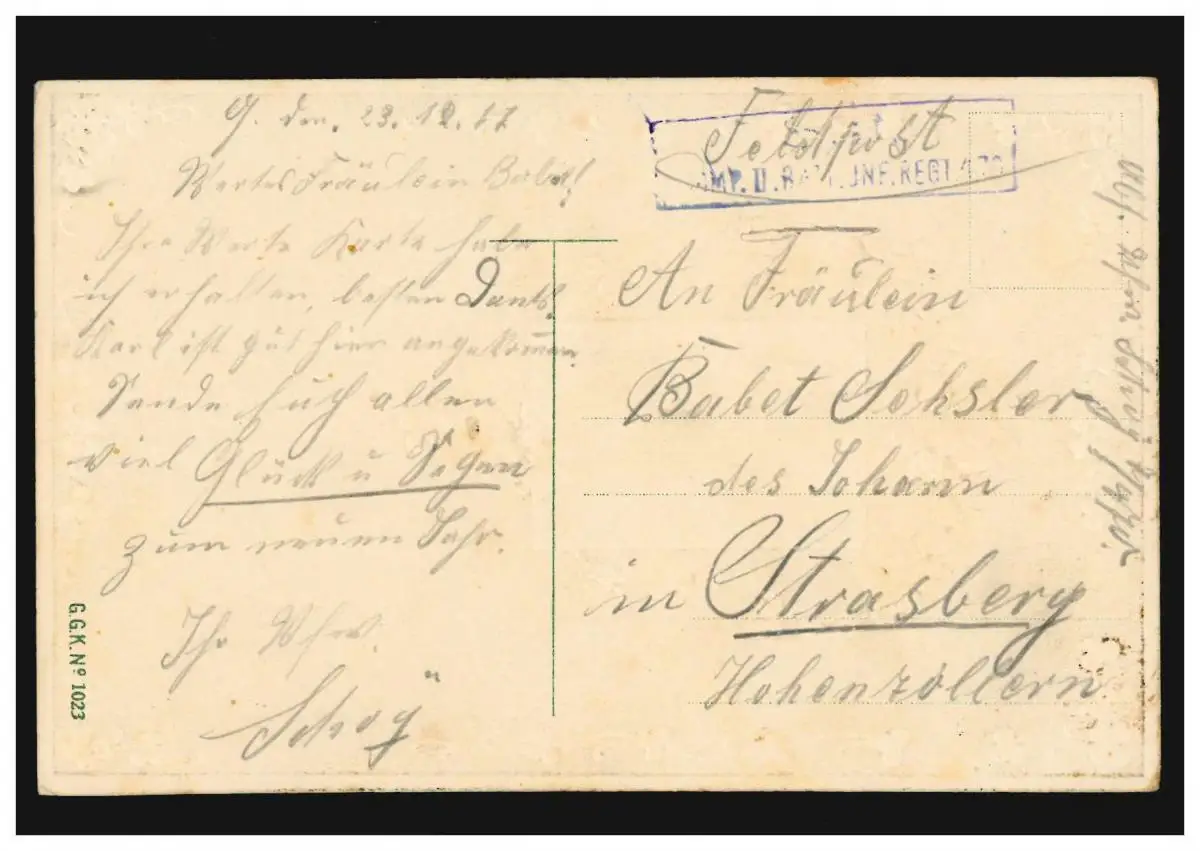 den. 23. 12. 17
Wertes Fräulein Babet!
Ihre Werte Karte habe
ich erhalten, besten Dank!
Karl ist gut hier angekommen
Sende Euch allen
viel Glück u Segen
zum neuen Jahr.
Ihr
Schög
G.G.K. Nº 1023
Feldpost
II. BATL. INF. REGT.
An Fräulein
Babet Sehsler
des Johann
in Strasberg
Hohenzollern